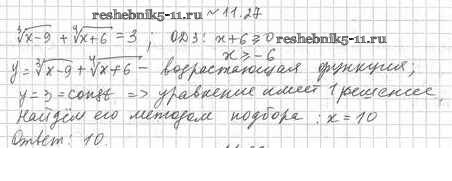 reshebnik5-11.ru № 11.27
∛x-9 + ∜x+6 = 3 ; ОДЗ: x+6 ≥ 0
x ≥ -6
y = ∛x-9 + ∜x+6 - возрастающая функция;
y = 3 = const => уравнение имеет 1 решение,
Найдём его методом подбора : x = 10
Ответ: 10.